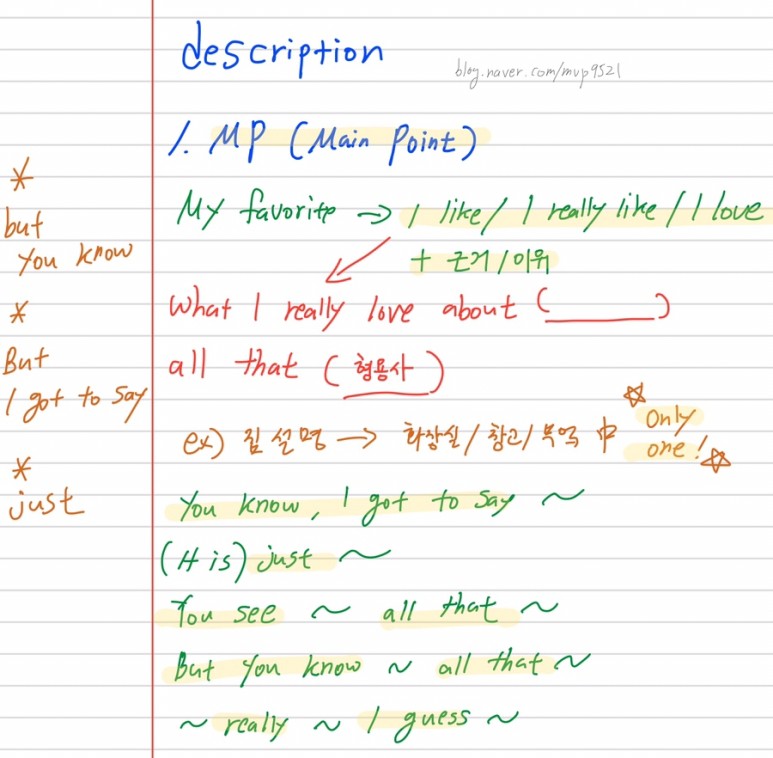 description
blog.naver.com/mvp9521
1. MP (Main Point)
My favorite → I like / I really like / I love
+ 근거/이유
What I really love about (______)
all that (형용사)
ex) 집 설명 → 화장실/창고/부엌 中 ☆ Only one! ☆
You know, I got to say ~
(It is) just ~
You see ~ all that ~
But you know ~ all that ~
~ really ~ I guess ~
*
but
you know
*
But
I got to say
*
just